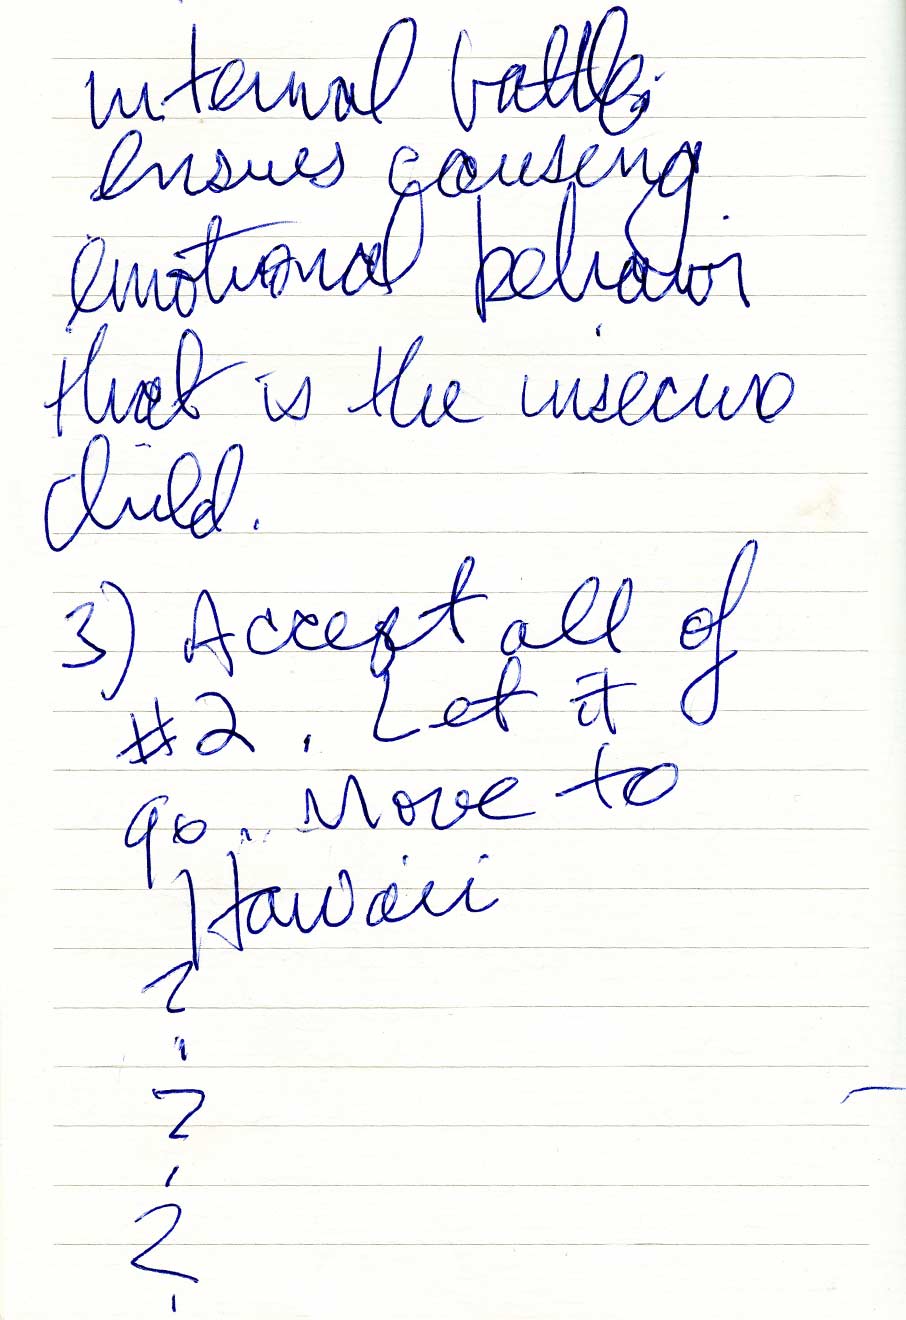 internal battle
ensues causing
emotional behavior
that is the insecure
child.
3) Accept all of
#2. Let it
go. Move to
Hawaii
?
?
?